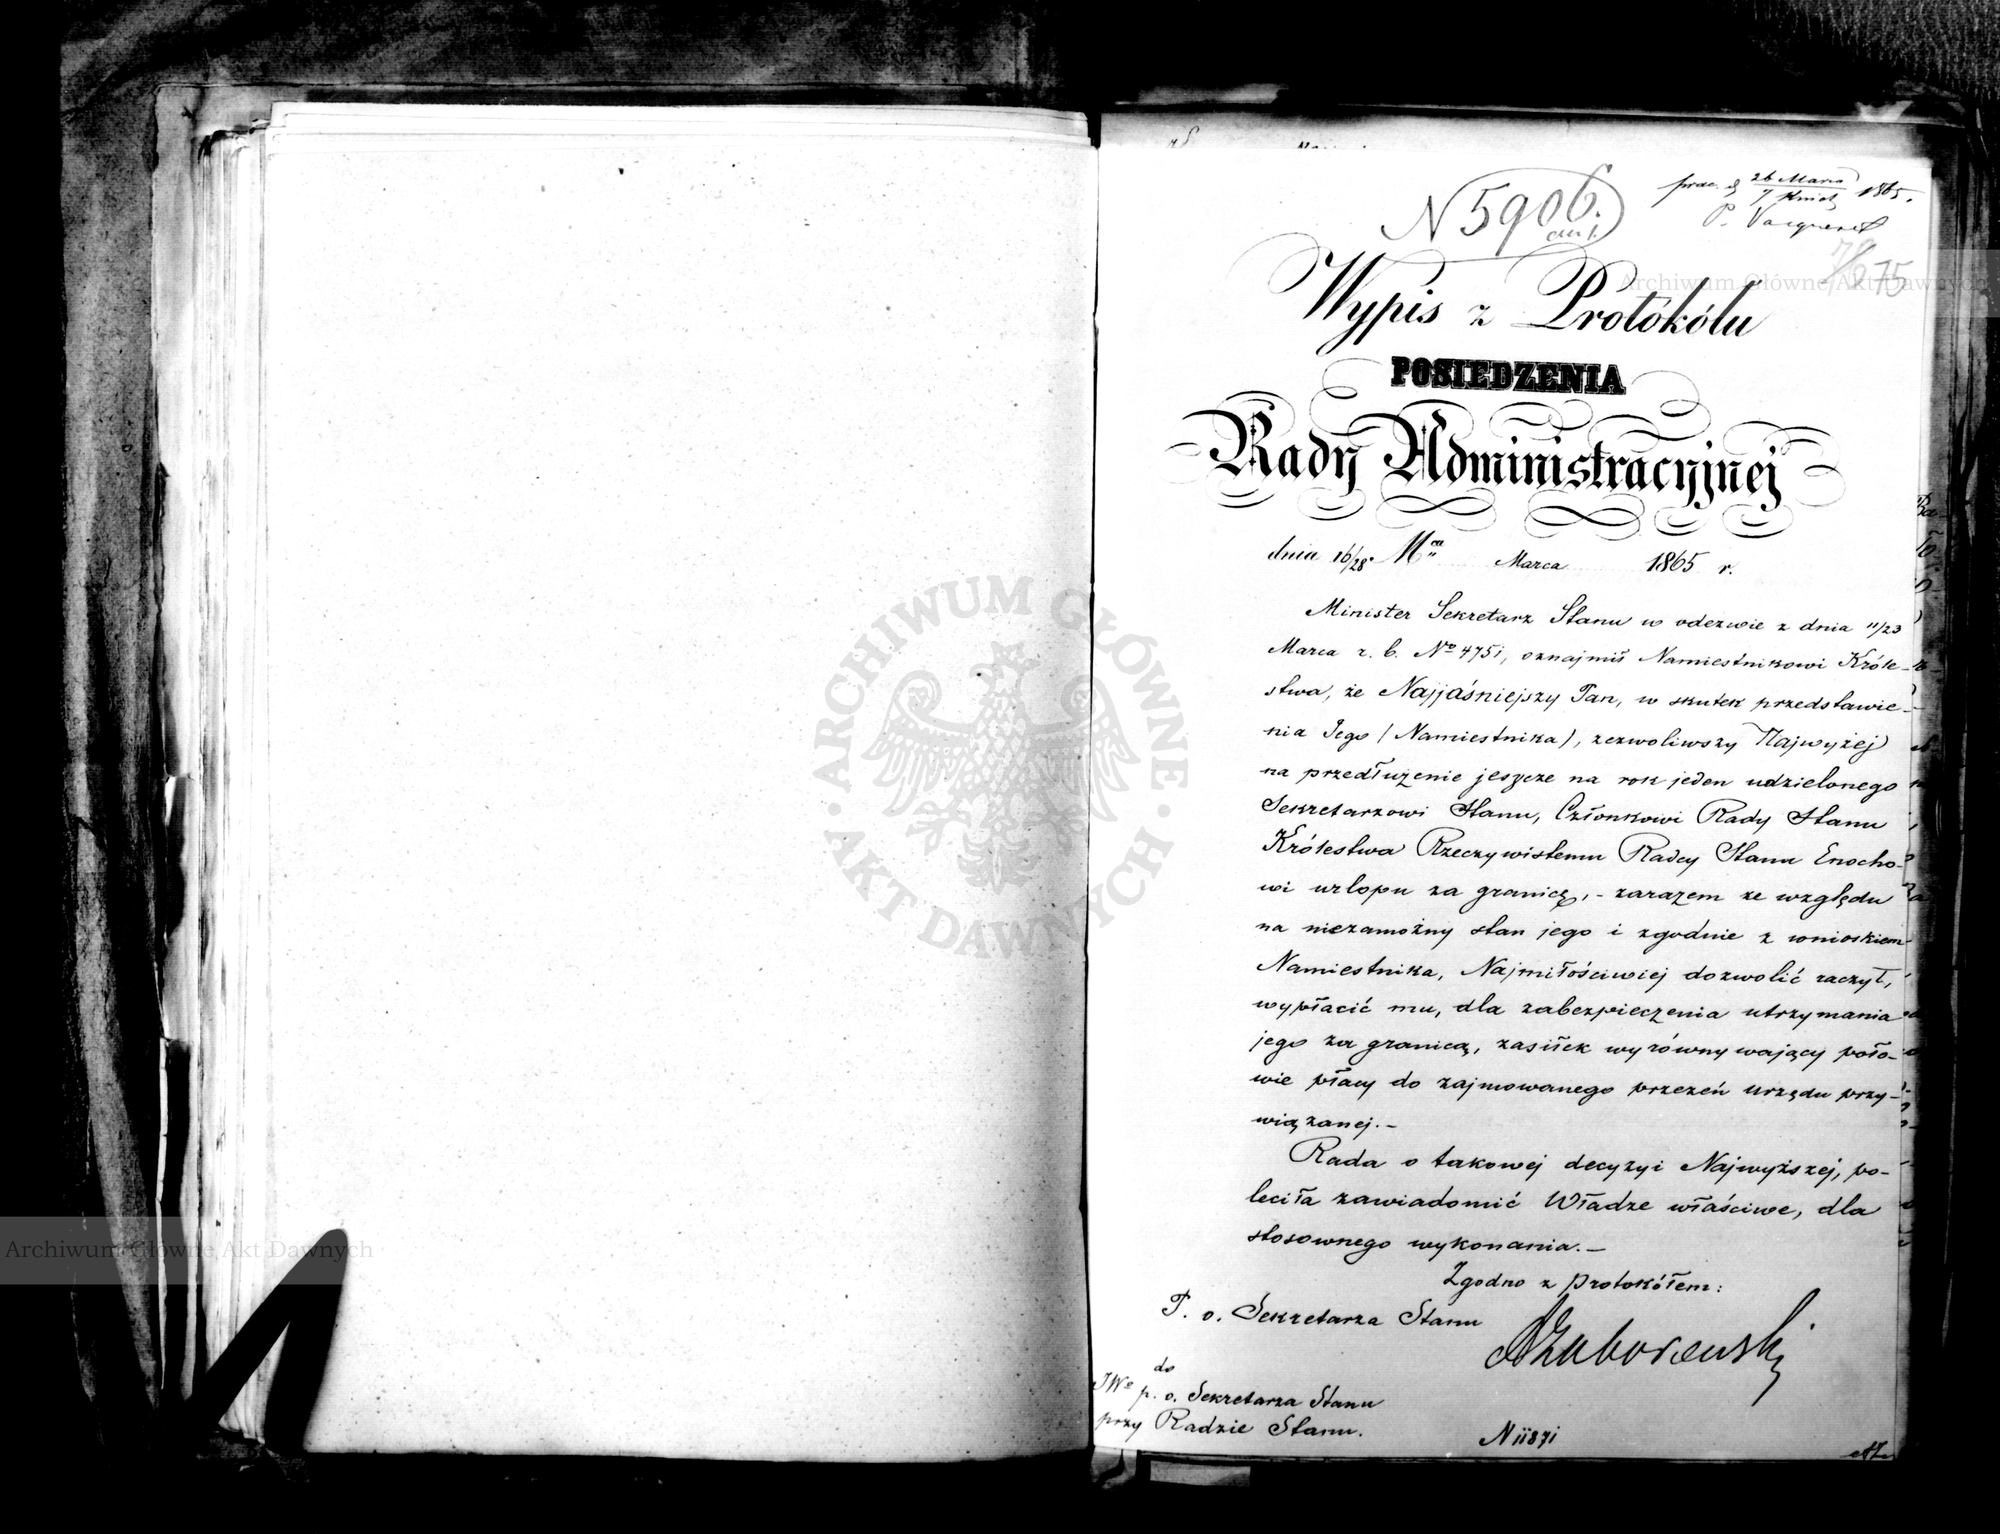 N 5906.
prac. d. 26 Marca / 7 Kwiet. 1865.
75
Wypis z Protókółu
POSIEDZENIA
Rady Administracyjnej
dnia 16/28 Mca Marca 1865 r.
Minister Sekretarz Stanu w odezwie z dnia 11/23
Marca r. b. No 4751, oznajmił Namiestnikowi Króle-
stwa, że Najjaśniejszy Pan, w skutek przedstawie-
nia Jego (Namiestnika), zezwoliwszy Najwyżej
na przedłużenie jeszcze na rok jeden udzielonego
Sekretarzowi Stanu, Członkowi Rady Stanu
Królestwa Rzeczywistemu Radcy Stanu Enocho-
wi urlopu za granicę, - zarazem ze względu
na niezamożny stan jego i zgodnie z wnioskiem
Namiestnika, Najmiłościwiej dozwolić raczył,
wypłacić mu, dla zabezpieczenia utrzymania
jego za granicą, zasiłek wyrównywający poło-
wie płacy do zajmowanego przezeń urzędu przy-
wiązanej. -
Rada o takowej decyzyi Najwyższej, po-
leciła zawiadomić Władze właściwe, dla
stosownego wykonania. -
Zgodno z Protokółem:
P. o. Sekretarza Stanu
AZaborowski
do
JWo p. o. Sekretarza Stanu
przy Radzie Stanu.
N 11871
Archiwum Główne Akt Dawnych
Archiwum Główne Akt Dawnych
ARCHIWUM GŁÓWNE AKT DAWNYCH